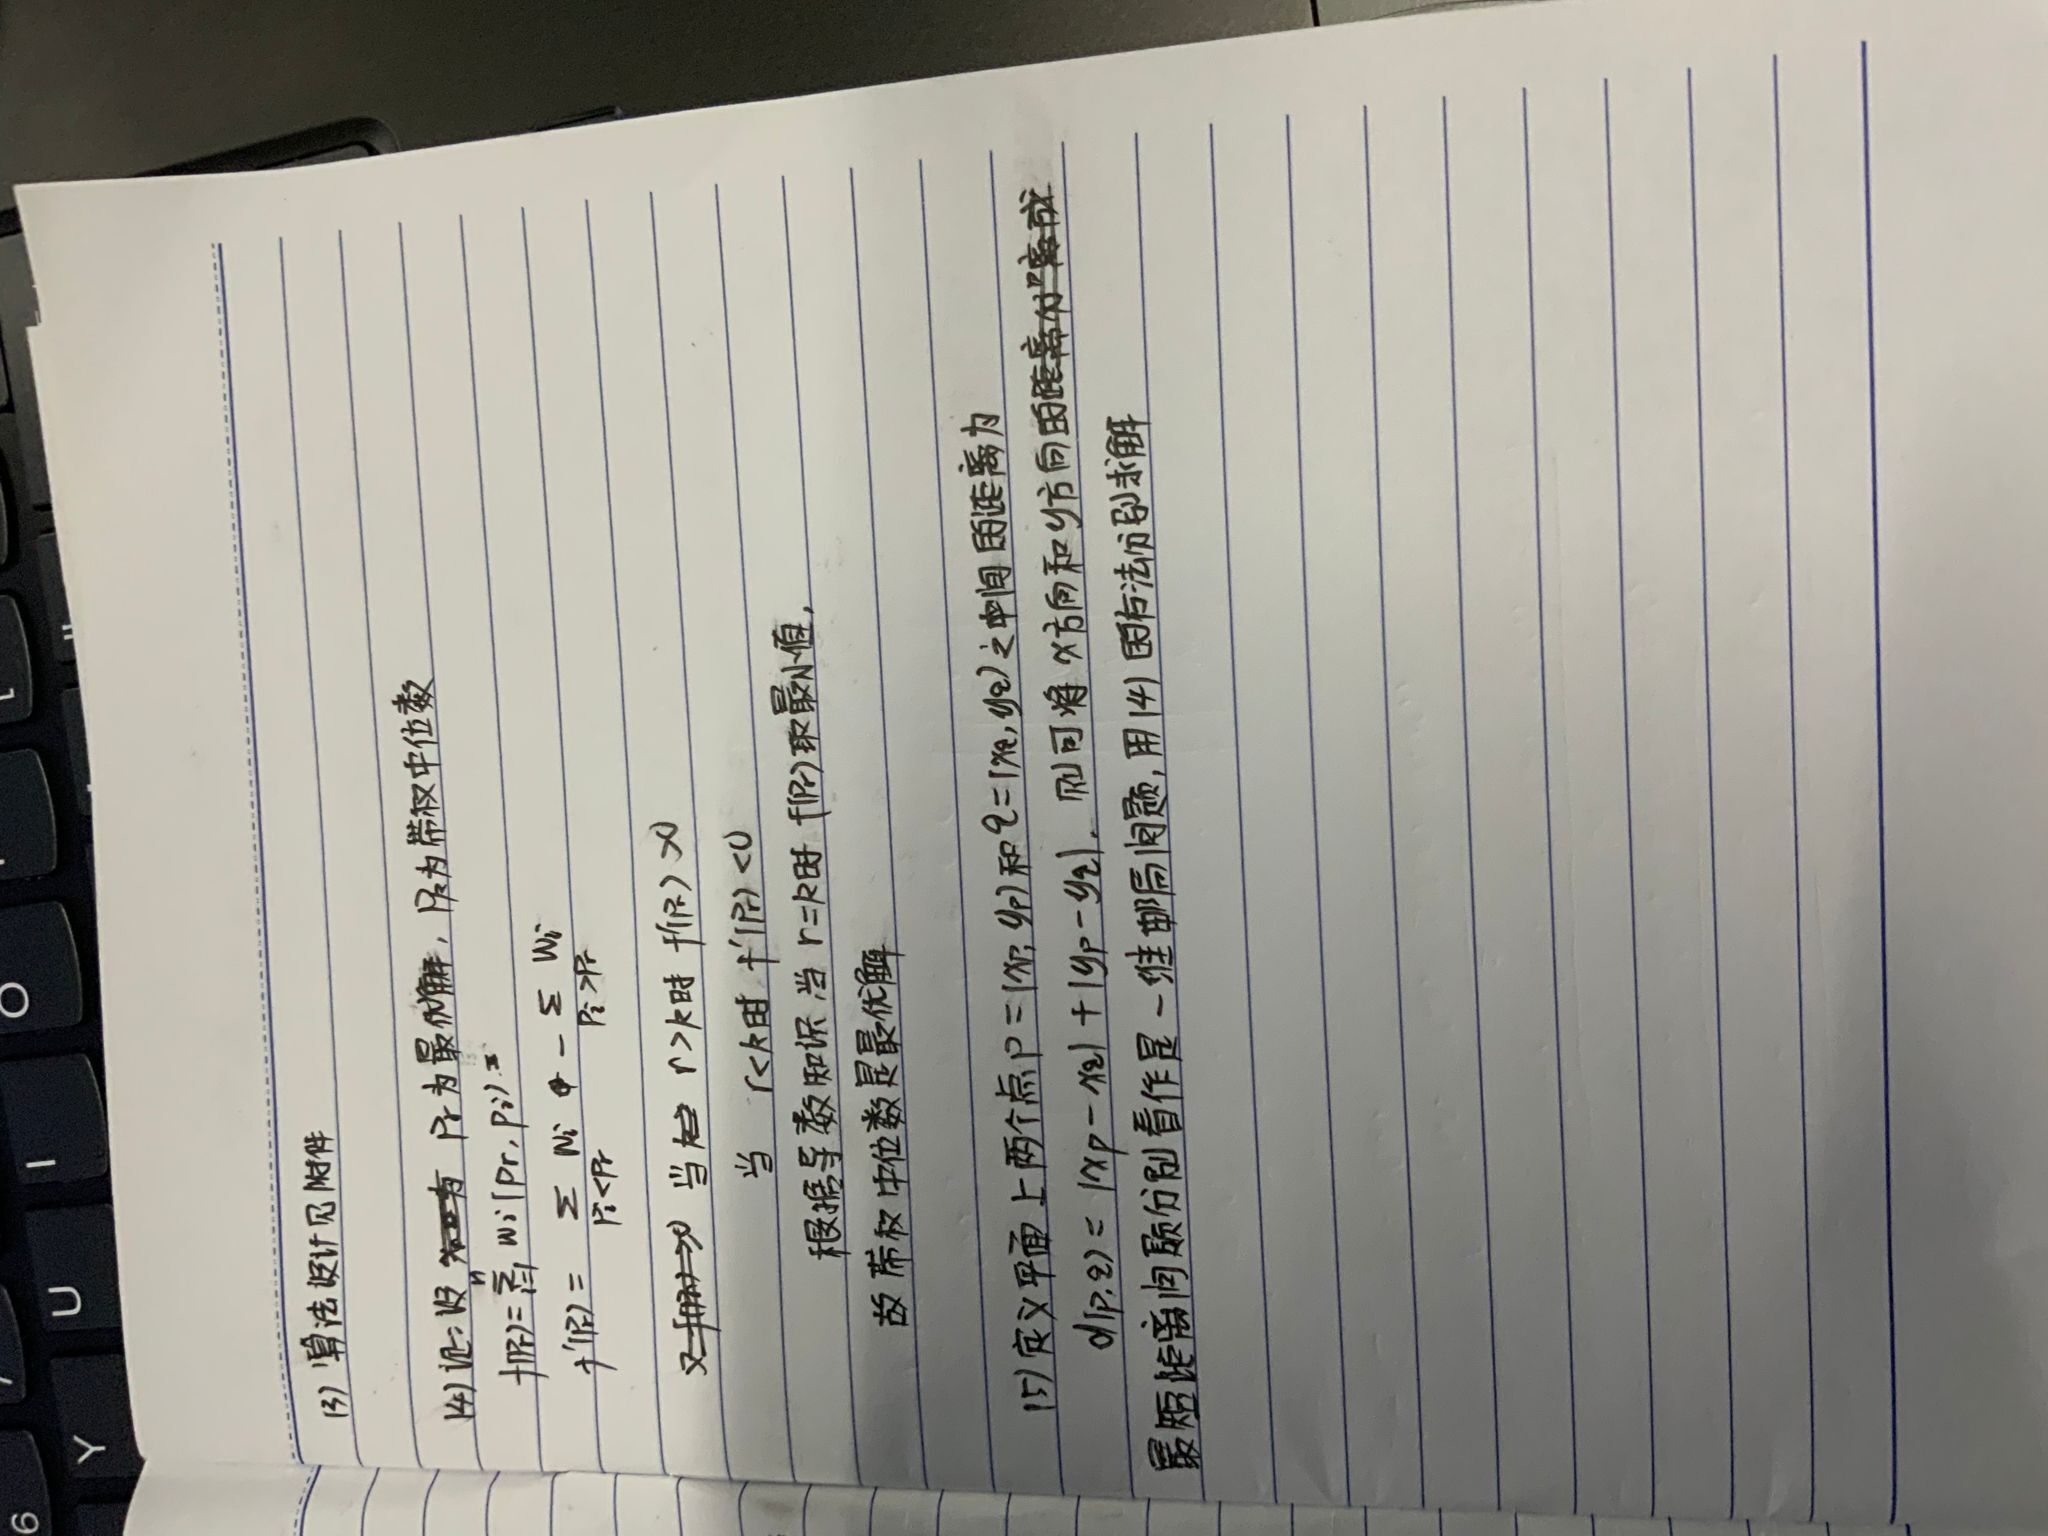 (3) 算法设计见附件
(4) 证: 设 Pr为最优解, Pk为带权中位数
f(Pr)=∑ⁿᵢ₌₁ wi(Pr,Pi)
f'(Pr) = ∑ Wi - ∑ Wi
Pi<Pr Pi>Pr
当 r>k时 f'(Pr)>0
当 r<k时 f'(Pr)<0
根据导数知识,当 r=k时 f(Pr)取最小值,
故带权中位数是最优解
(5) 定义平面上两个点P=(xp, yp)和q=(xq, yq)之中间的距离为
d(p,q)=|xp-xq|+|yp-yq|. 则可将x方向和y方向的
最短距离问题分别看作是一维邮局问题,用(4)的方法分别求解
Y
U
I
O
6